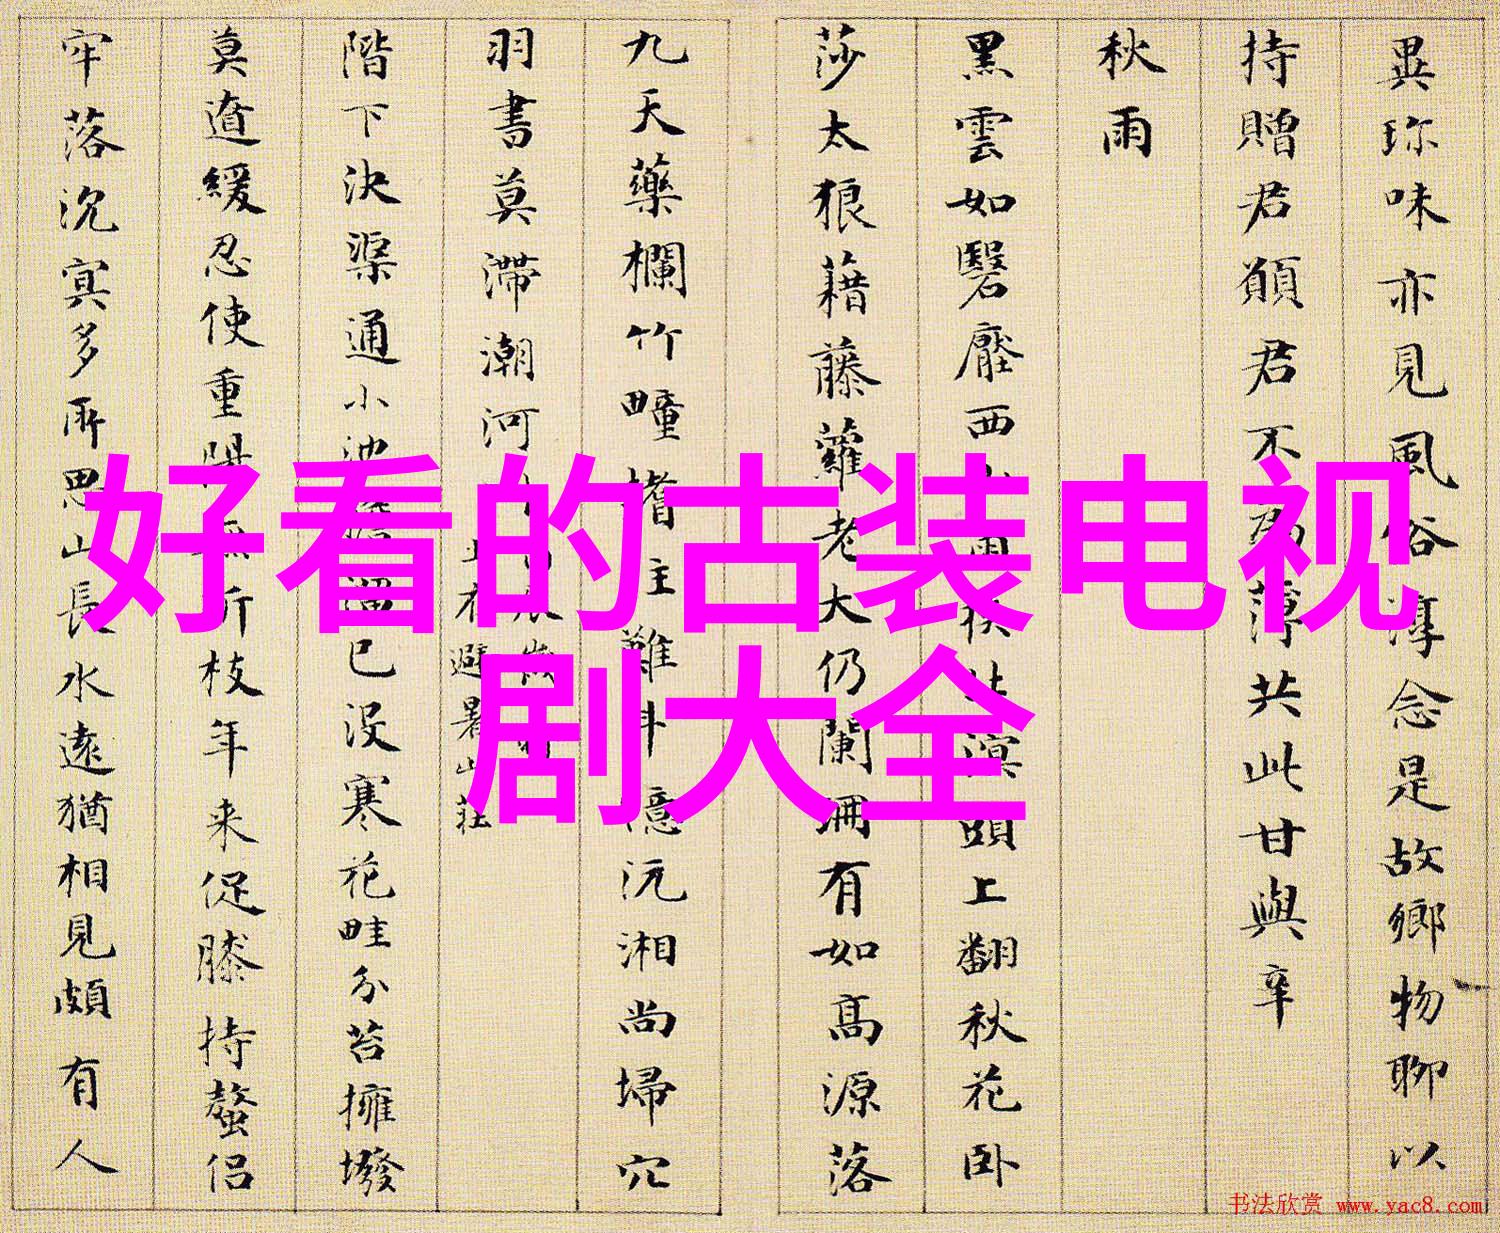 異珎味亦見風俗淳念是故鄉物聊以
持贈君願君不為薄共此甘與辛
秋雨
黑雲如翳壓西
頭上翻秋花卧
莎太狼藉藤蘿老大仍闌
有如高源落
九天藥欄竹疃
主難
憶沅湘尚埽穴
羽書莫滯潮河
避暑山莊
階下決渠通小池
已没寒花畦分苔擁撥
莫遒緩忍使重陽
折枝年来促膝持螯侣
牢落沉寅多所思山長水遠猶相見頗有人
好看的古装电视
剧大全
书法欣赏 www.yac8.com